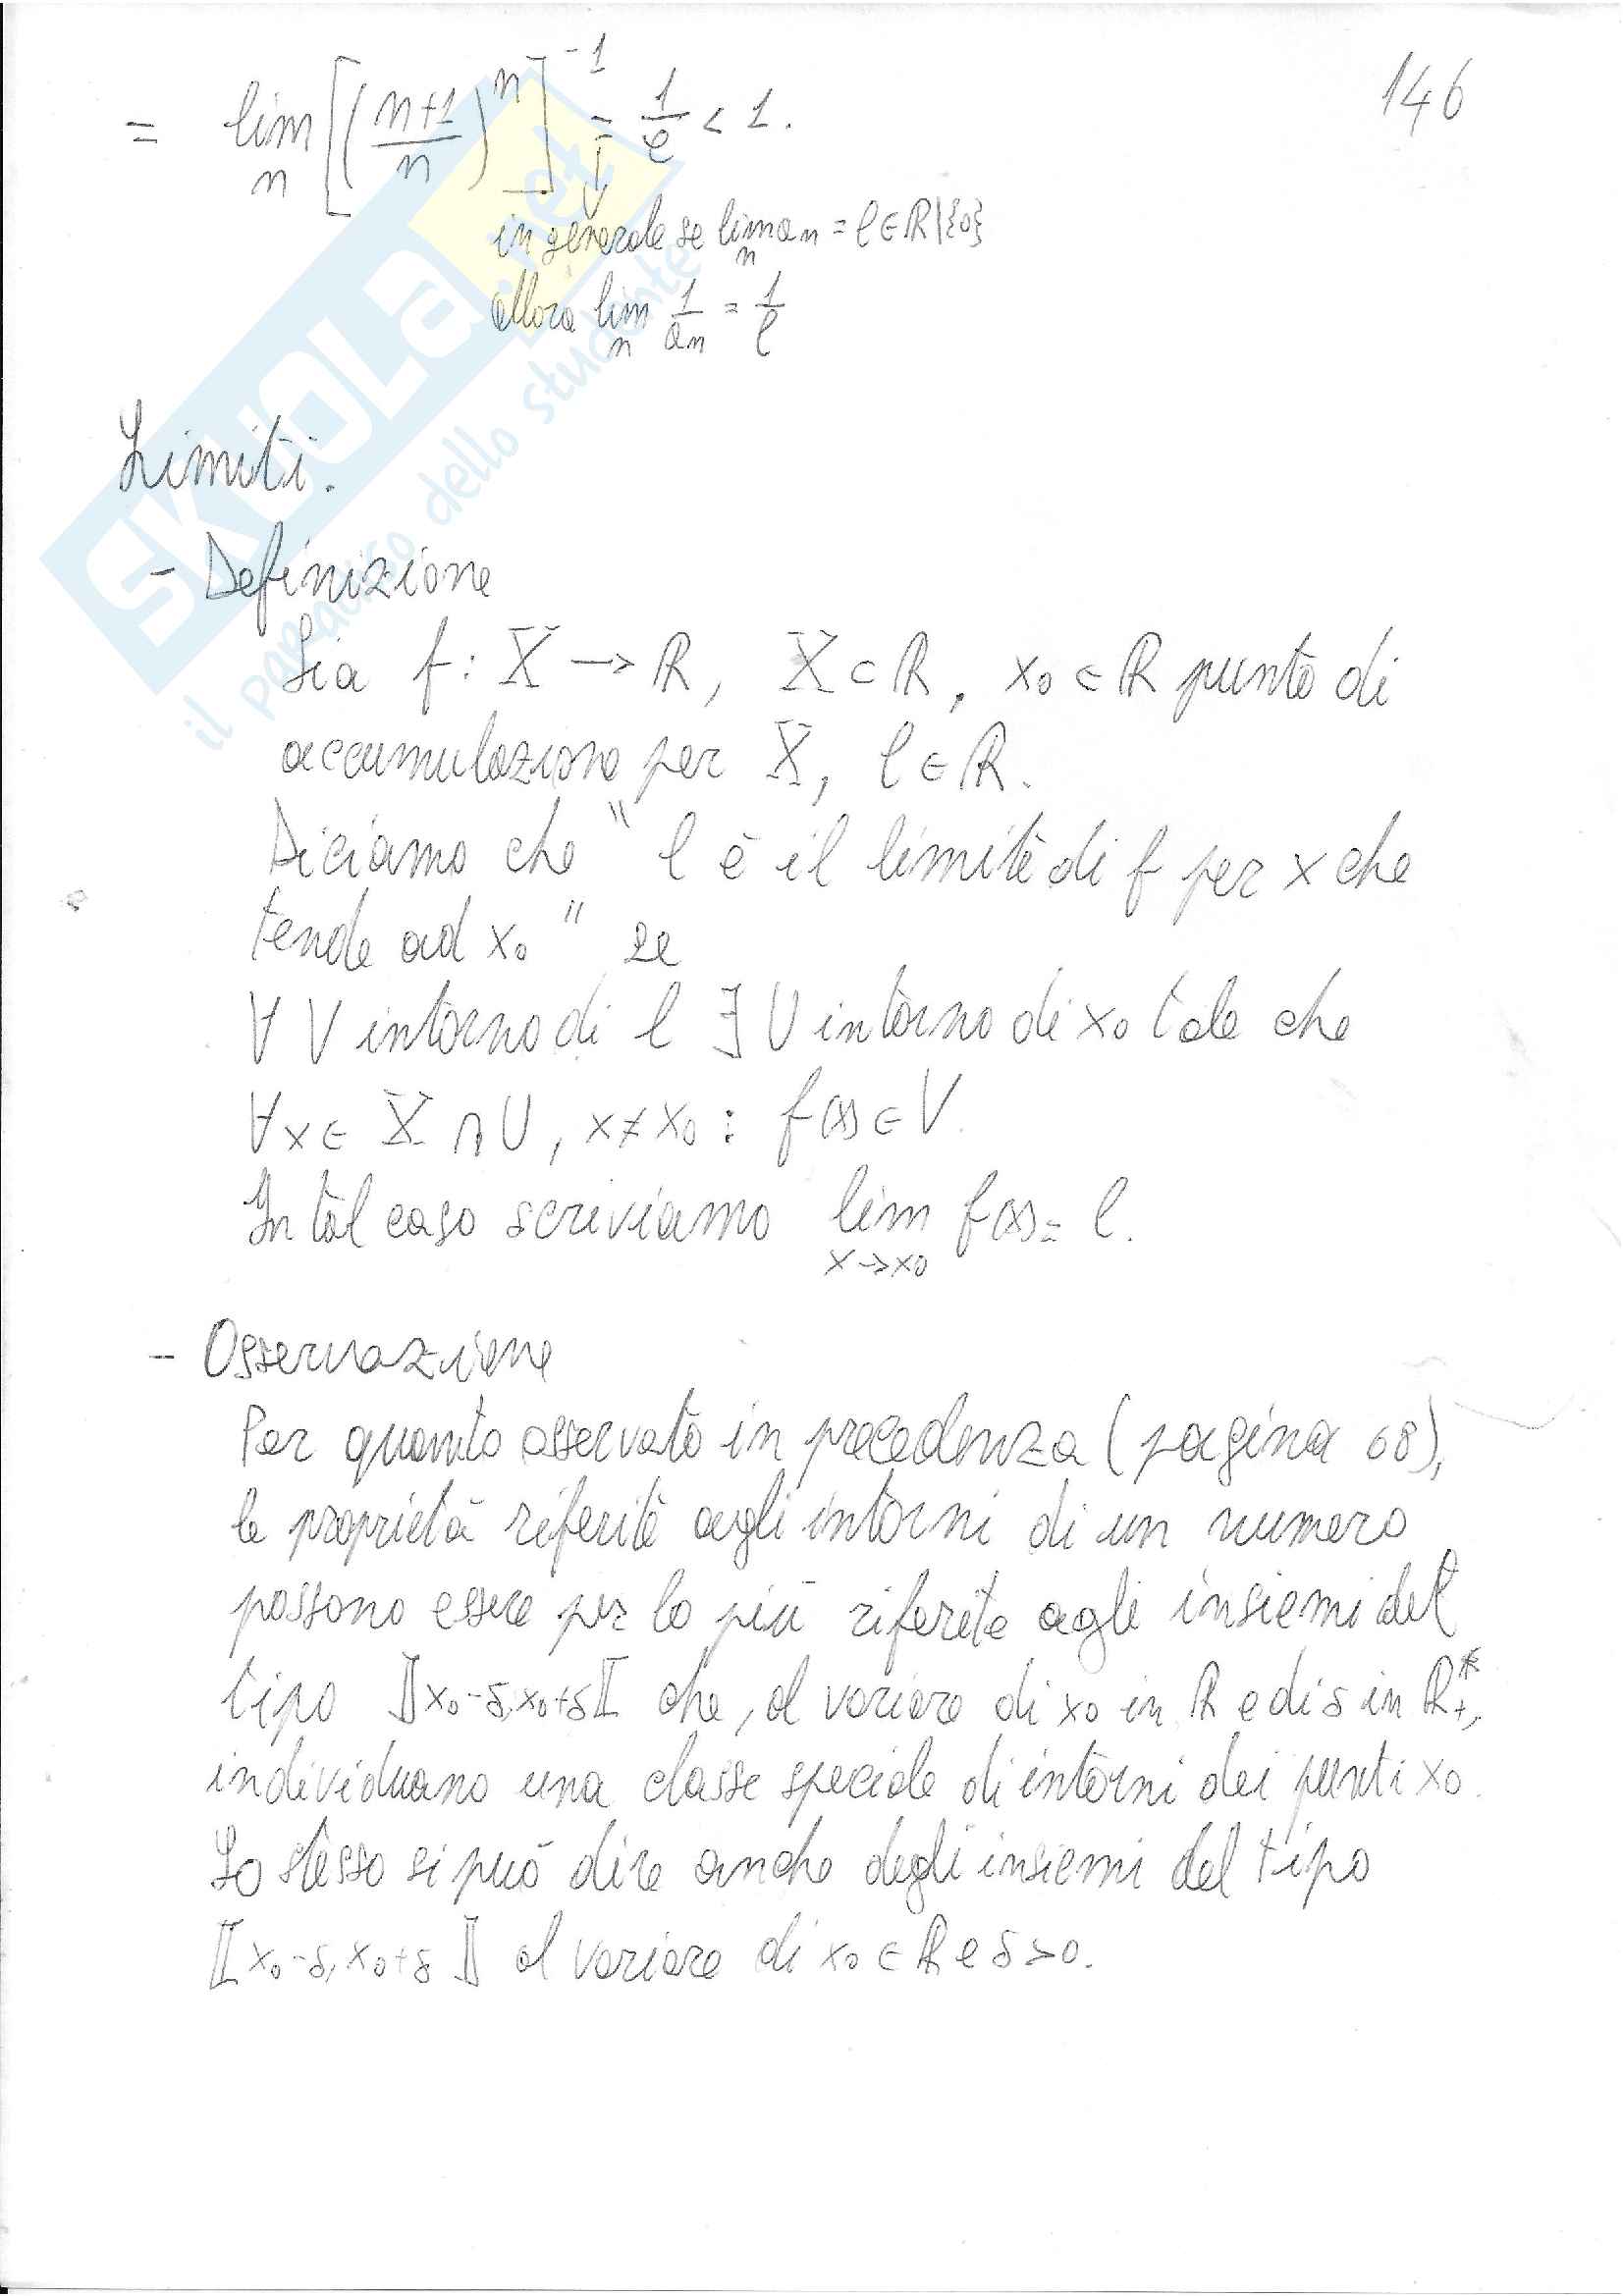 146
= lim_n [((n+1)/n)^n]^{-1} = 1/e < 1.
in generale se lim_n a_n = l ∈ ℝ\{0}
allora lim_n 1/a_n = 1/l
Limiti.
- Definizione
Sia f : X → ℝ, X ⊂ ℝ, x₀ ∈ ℝ punto di
accumulazione per X, l ∈ ℝ.
Diciamo che " l è il limite di f per x che
tende ad x₀ " se
∀ V intorno di l ∃ U intorno di x₀ tale che
∀x ∈ X ∩ U, x ≠ x₀ : f(x) ∈ V.
In tal caso scriviamo lim_{x→x₀} f(x) = l.
- Osservazione
Per quanto osservato in precedenza (pagina 68),
le proprietà riferite agli intorni di un numero
possono essere per lo più riferite agli insiemi del
tipo ⟧x₀-δ, x₀+δ⟦ che, al variare di x₀ in ℝ e di δ in ℝ₊*,
individuano una classe speciale di intorni dei punti x₀.
Lo stesso si può dire anche degli insiemi del tipo
⟦x₀-δ, x₀+δ⟧ al variare di x₀ ∈ ℝ e δ>0.
SKUOLA.net
il paradiso dello studente